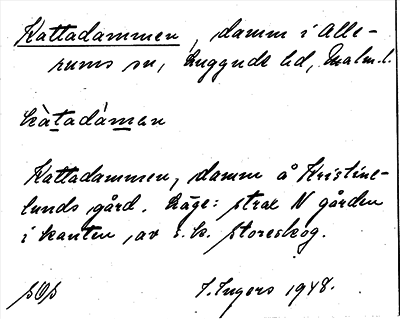 Kattadammen, damm i Alle-
rums sn, Luggude hd, Malm. l.
kàtadáman
Kattadammen, damm å Kristine-
lunds gård. Läge: strax N gården
i kanten av s.k. storeskog.
sOs
I. Ingers 1948.